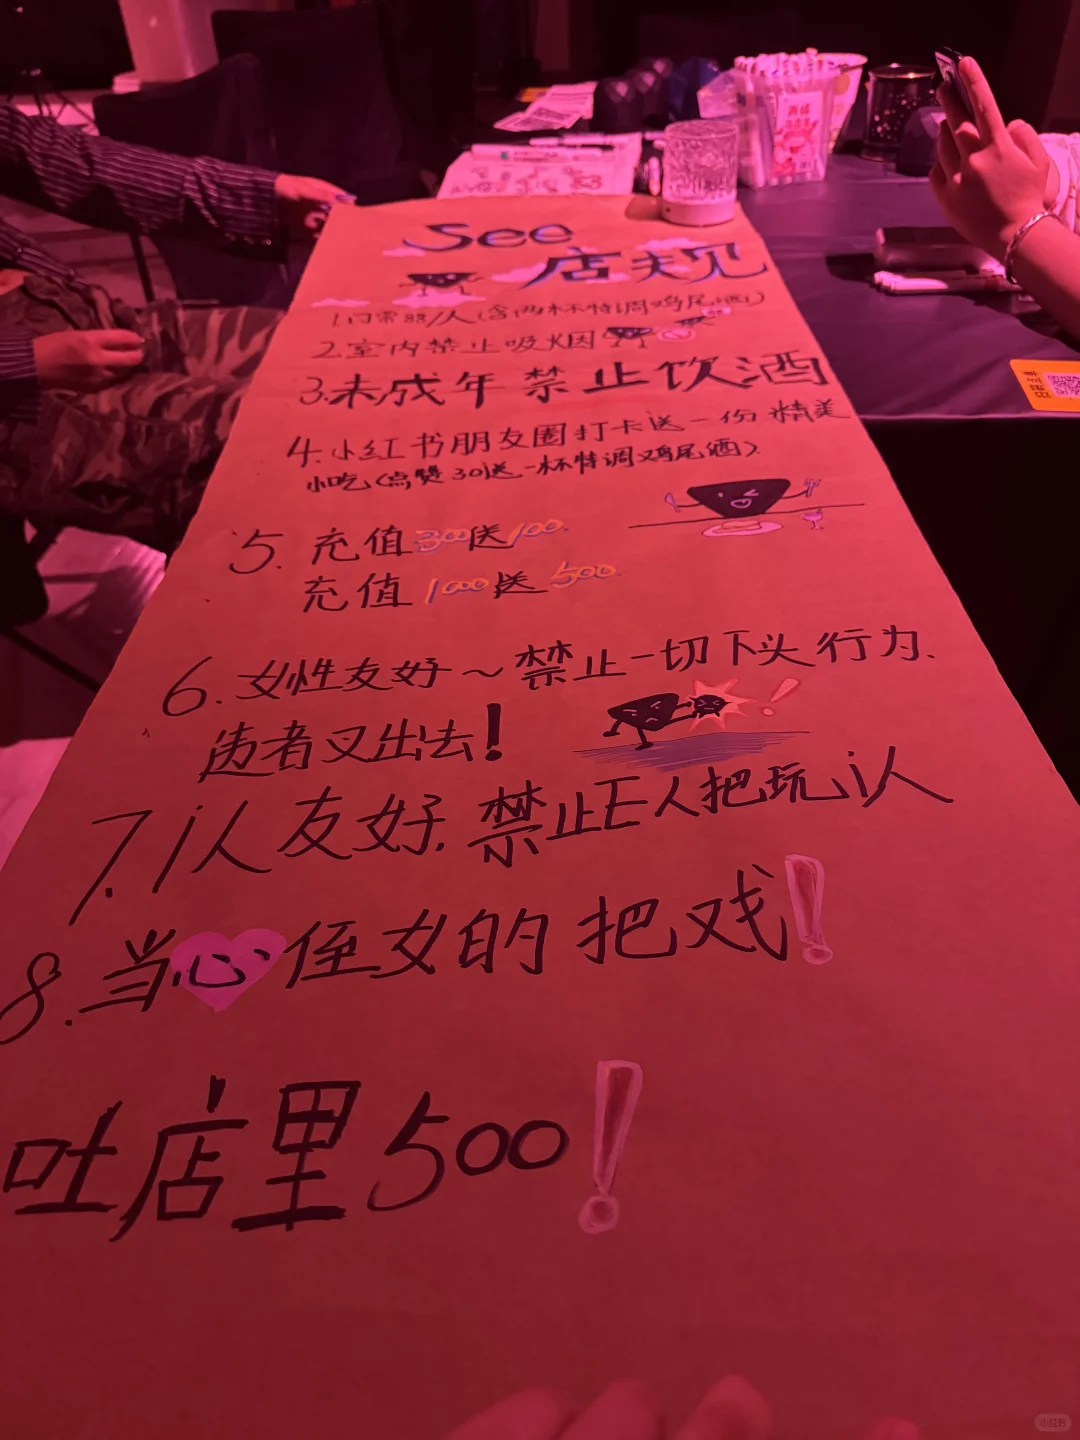 See
店规
1.门票88/人(含两杯特调鸡尾酒)
2.室内禁止吸烟
3.未成年禁止饮酒
4.小红书朋友圈打卡送一份精美
小吃(点赞30送一杯特调鸡尾酒).
5.充值300送100.
充值1000送500.
6.女性友好~禁止一切下头行为.
违者叉出去!
7.i人友好.禁止E人把玩i人
8.当心侄女的把戏!
吐店里500!
小红书